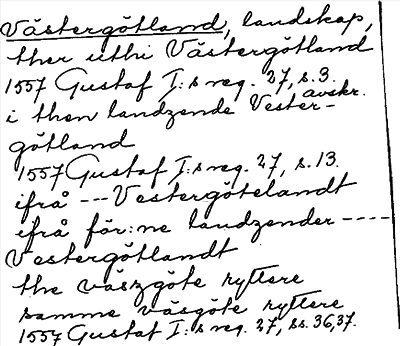 Västergötland, landskap,
ther uthi Västergötland
1557 Gustaf I:s reg. 27, s. 3.
avskr.
i then landzende Vester-
götland
1557 Gustaf I:s reg. 27, s. 13.
ifrå --- Vestergötelandt
ifrå för:ne landzender ----
Vestergötlandt
the väszgöte ryttere
samme väsgöte ryttere
1557 Gustaf I:s reg. 27, ss. 36, 37.